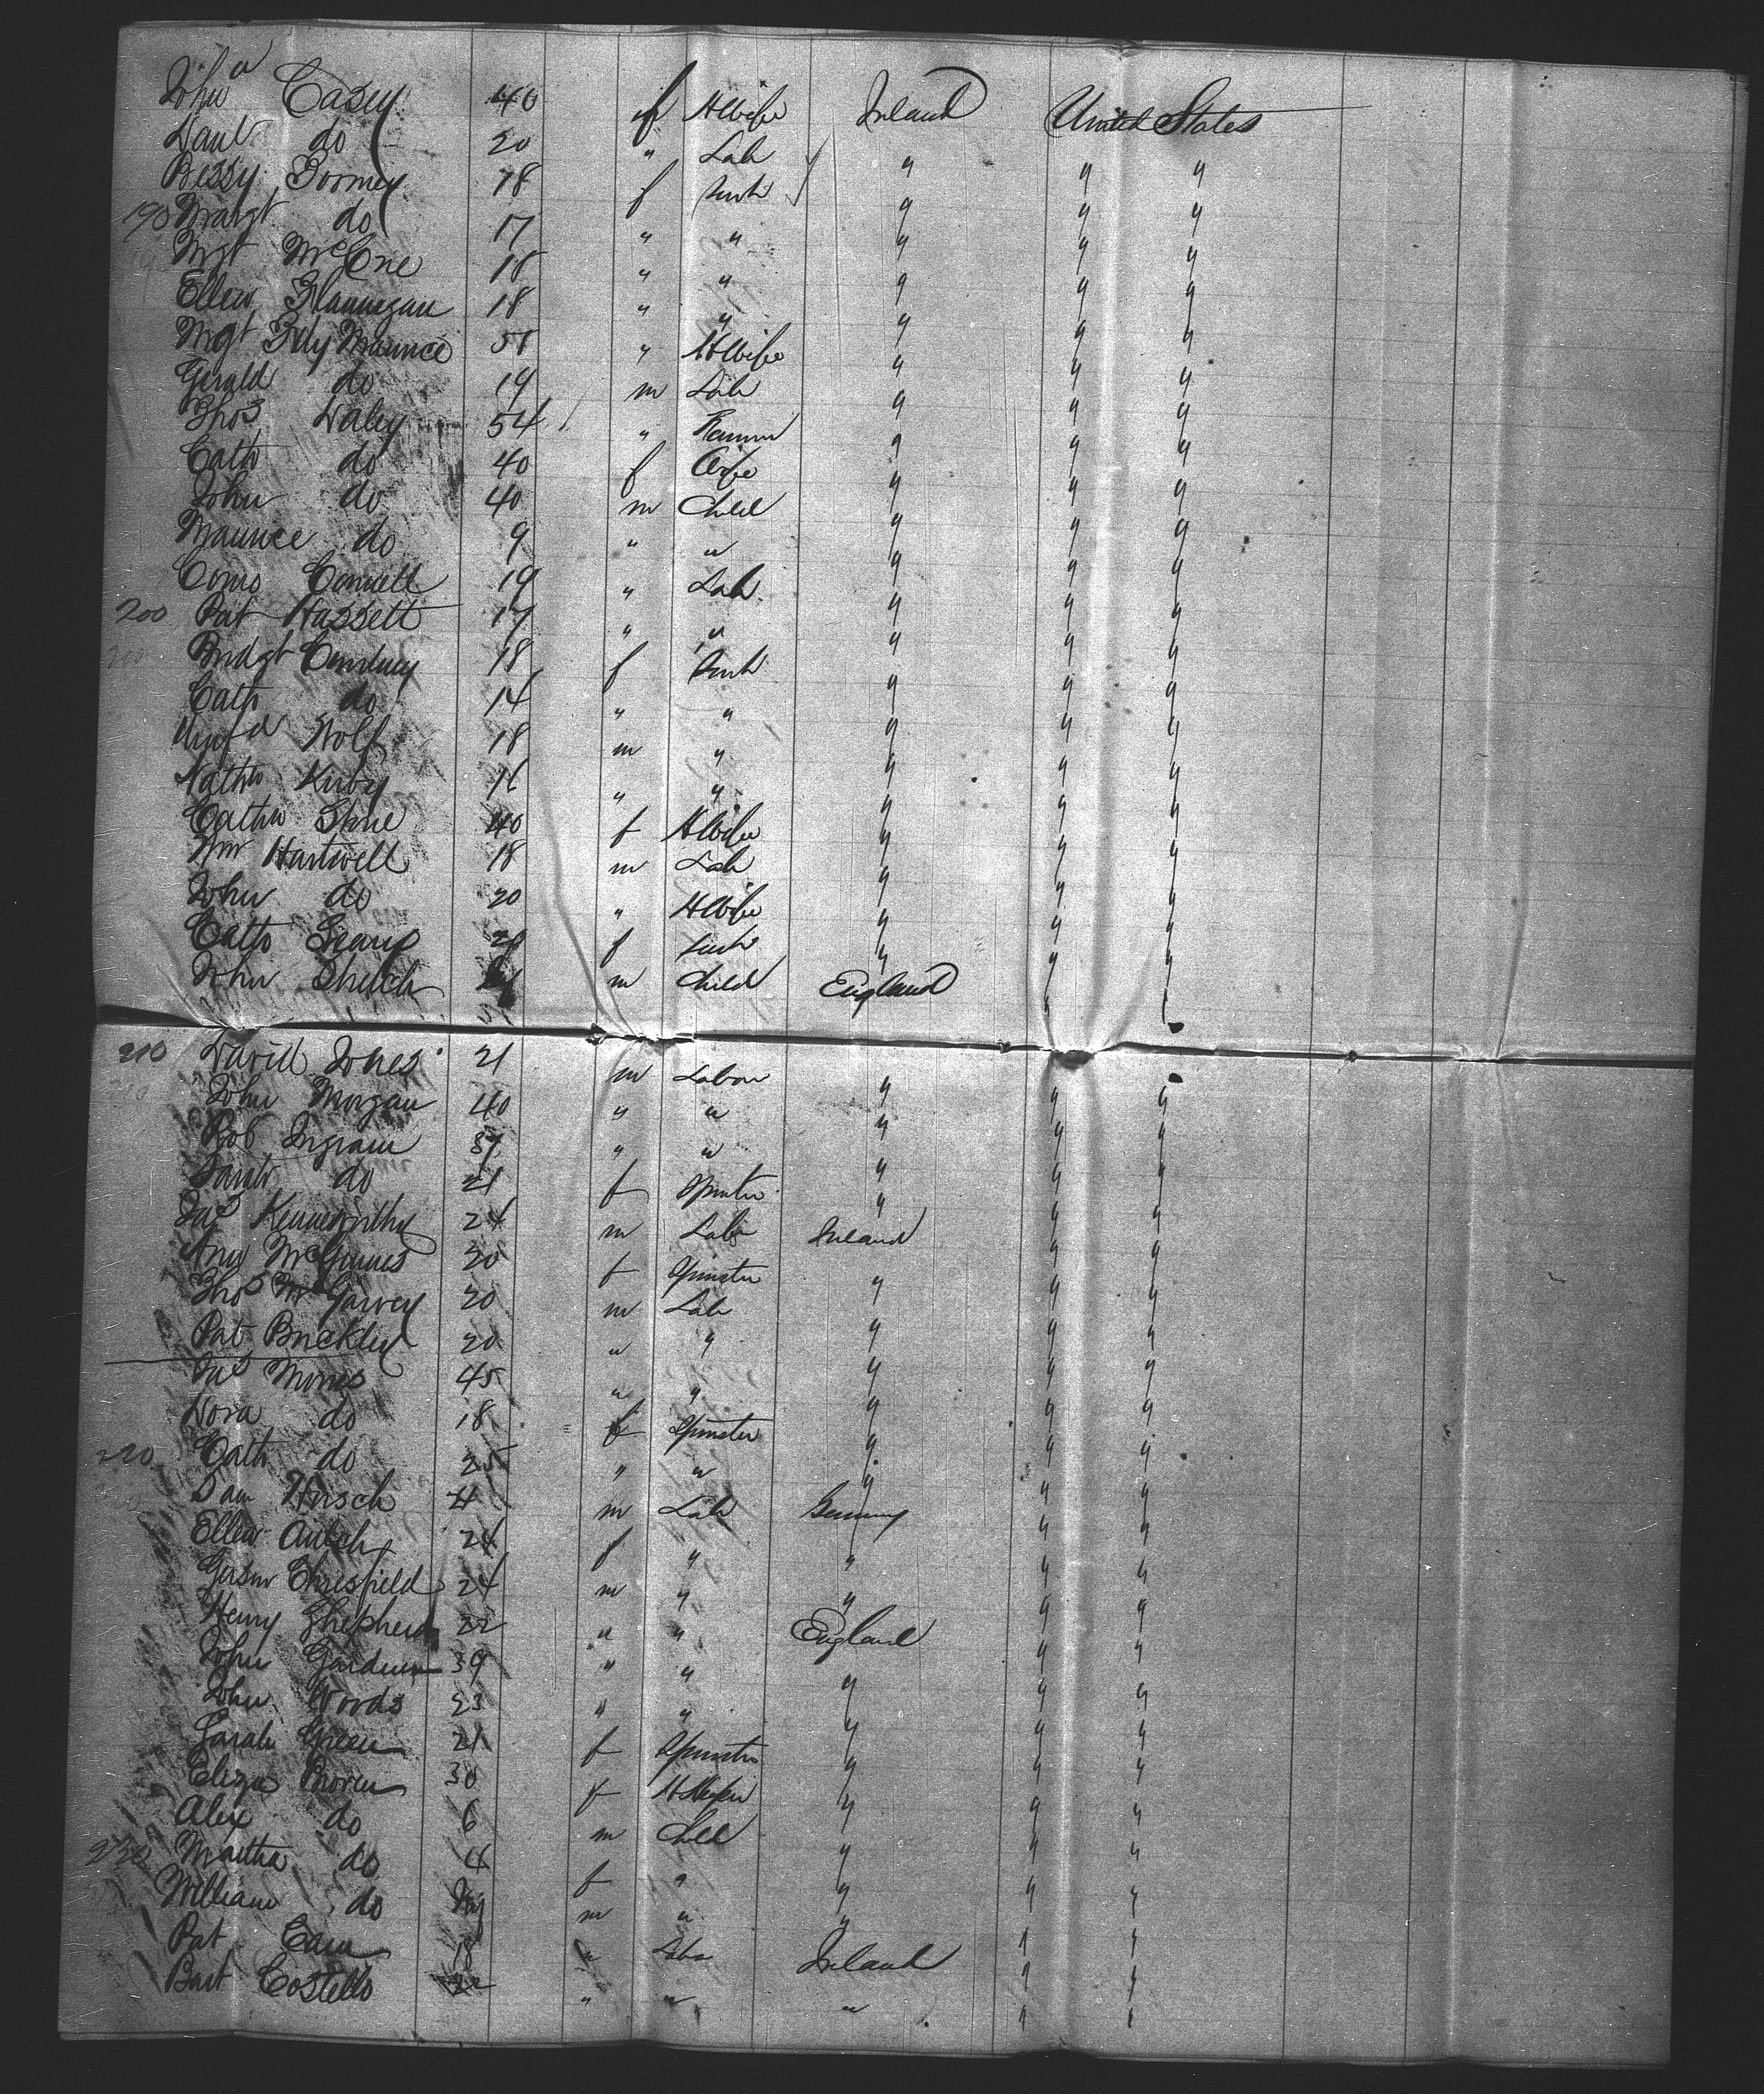 Johna Casey 40 f HWife Ireland United States
Danl do 20 " Lab " " "
Bessy Gormey 18 f " " "
190 Margt do 17 " " " " "
Mgt McCrie 18 " " " " "
Ellen Flannegan 18 " " " " "
Mgt Fitz Maurice 58 " HWife " " "
Gerald do 19 m Lab " " "
Thos Daley 54 " Farmer " " "
Cath do 40 f Wife " " "
John do 40 m Child " " "
Maurice do 9 " " " " "
Corns Connell 19 " Lab " " "
200 Pat Hassett 17 " " " " "
Bridgt 18 f " " "
Cath do 14 " " " " "
Wolf 18 m " " " "
Kirby 16 " " " " "
Cathn Shine 40 f HWife " " "
Wm Hartwell 18 m Lab " " "
John do 20 " HWife " " "
Cath Leary 20 f " " "
John m Child England " "
210 David Jones 21 m Labour " " "
John Morgan 40 " " " " "
Rob Ingram 37 " " " " "
do 21 f Spinster " " "
Jas Kenneworthy 24 m Labr Ireland " "
Ann McGinnes 20 f Spinster " " "
Thos McGarvey 20 m Lab " " "
Pat Brickley 20 " " " " "
Jas Morris 45 " " " " "
Nora do 18 f Spinster " " "
220 Cath do 25 " " " " "
Sam Hirsch 21 m Lab Germany " "
Ellen 24 f " " " "
Ehresfield 24 m " " " "
Henry Shepherd 22 " " England " "
John Gardner 39 " " " " "
John Woods 23 " " " " "
Sarah Green 21 f Spinster " " "
Eliza 30 f HKeeper " " "
Alex do 6 m Child " " "
230 Martha do 4 f " " " "
William do Inf m " " " "
Pat Cain 18 " Labr Ireland " "
Bart Costello 22 " " " " "